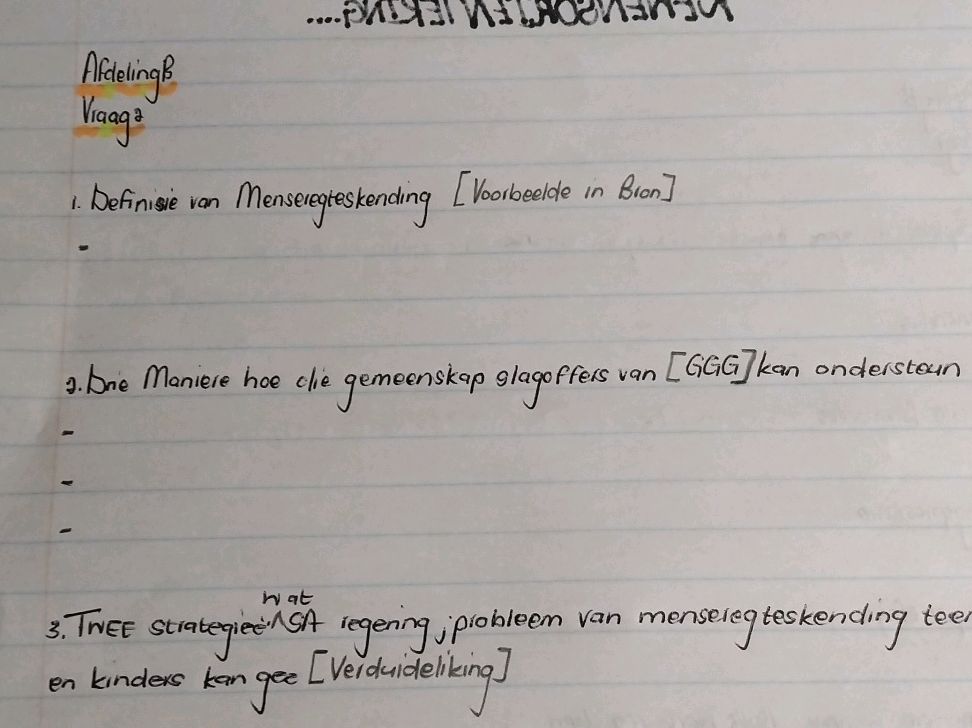 Afdeling B
Vraag 2
1. Definisie van Menseregteskending [Voorbeelde in Bron]
-
2. Drie Maniere hoe die gemeenskap slagoffers van [GGG] kan ondersteun
-
-
-
wat
3. TWEE strategieë ^ SA regering, probleem van menseregteskending teen
en kinders kan gee [Verduideliking]